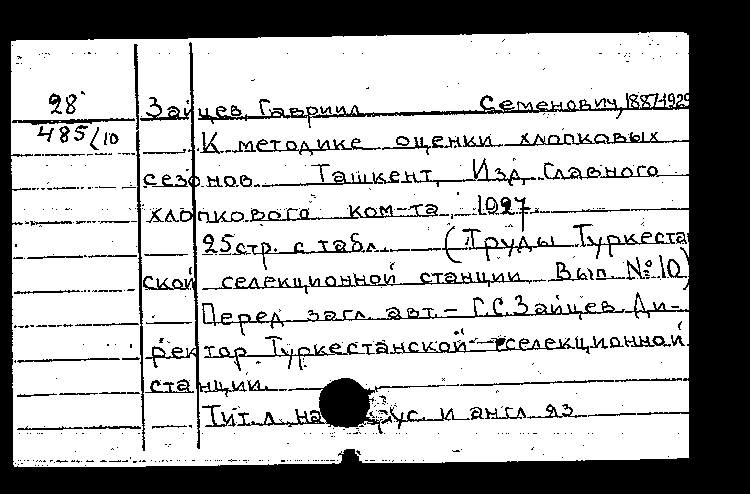 28
485/10
Зайцев, Гавриил Семенович, 1887-1929
К методике оценки хлопковых
сезонов. Ташкент, Изд. Главного
хлопкового ком-та, 1927.
25 стр. с табл. (Труды Туркестан
ской селекционной станции Вып. №:10)
Перед загл. авт. - Г.С. Зайцев. Ди-
ректор Туркестанской селекционной
станции.
Тит. л. на рус. и англ. яз